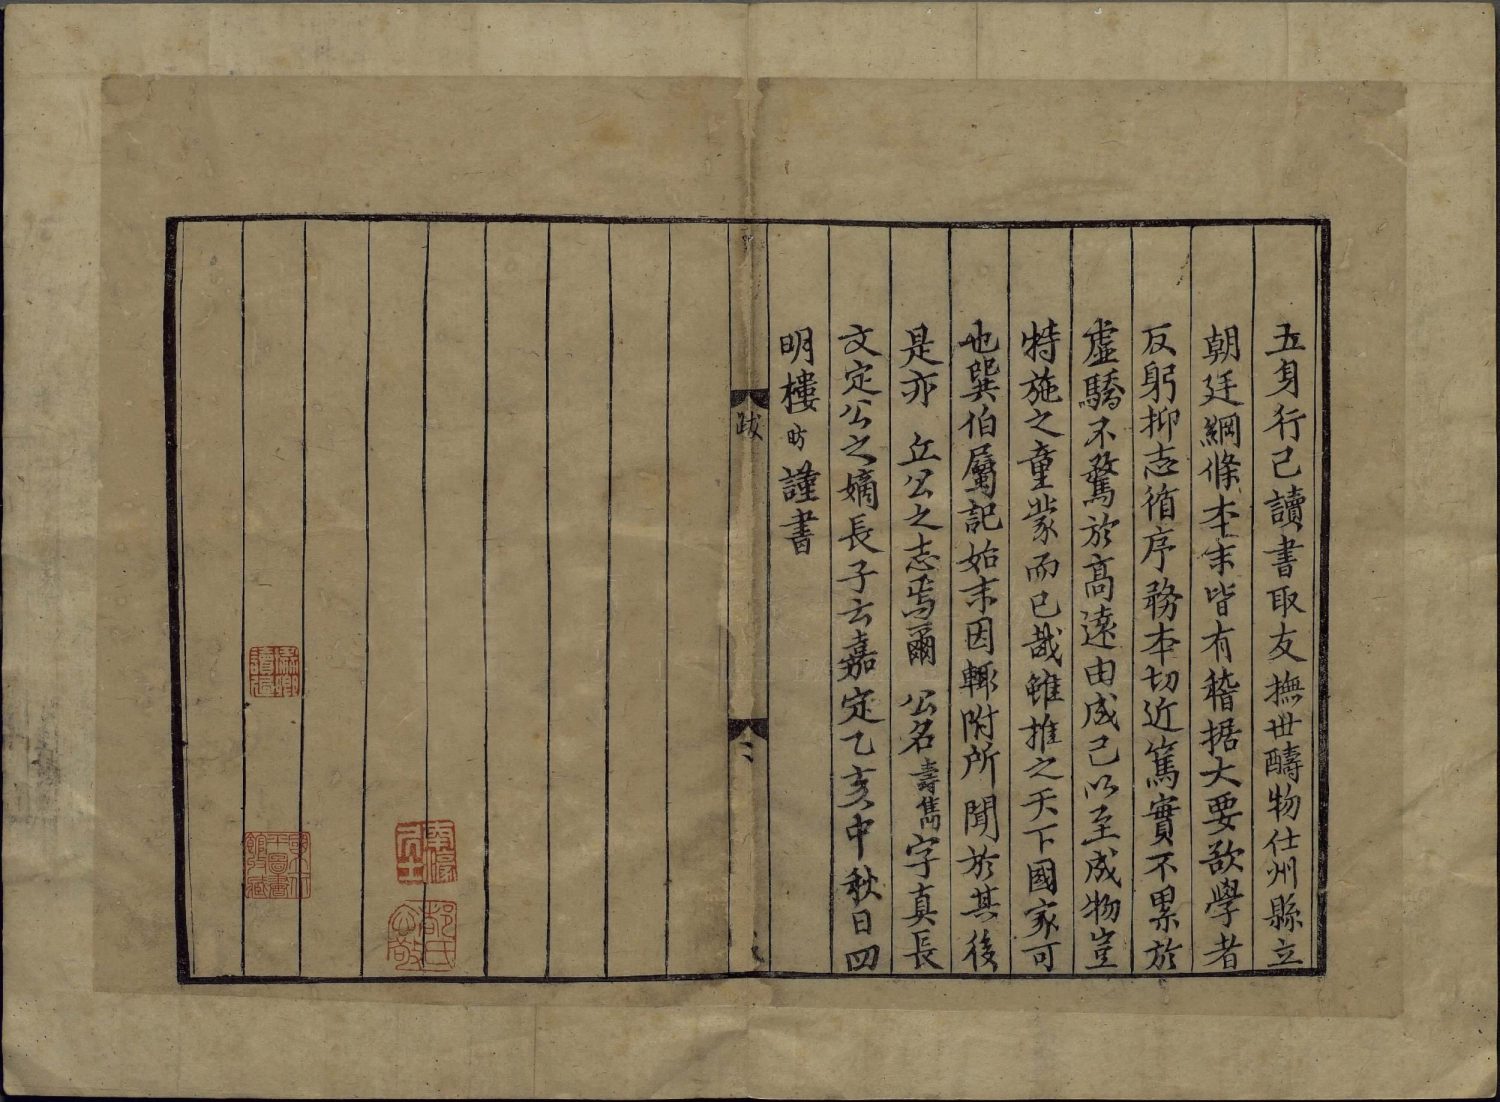 五身行己讀書取友撫世醻物仕州縣立
朝廷綱條本末皆有稽据大要欲學者
反躬抑志循序務本切近篤實不累於
虛驕不騖於高遠由成己以至成物豈
特施之童蒙而已哉雖推之天下國家可
也巽伯屬記始末因輒附所聞於其後
是亦 丘公之志焉爾 公名壽雋字真長
文定公之嫡長子云嘉定乙亥中秋日四
明樓昉謹書
跋
二